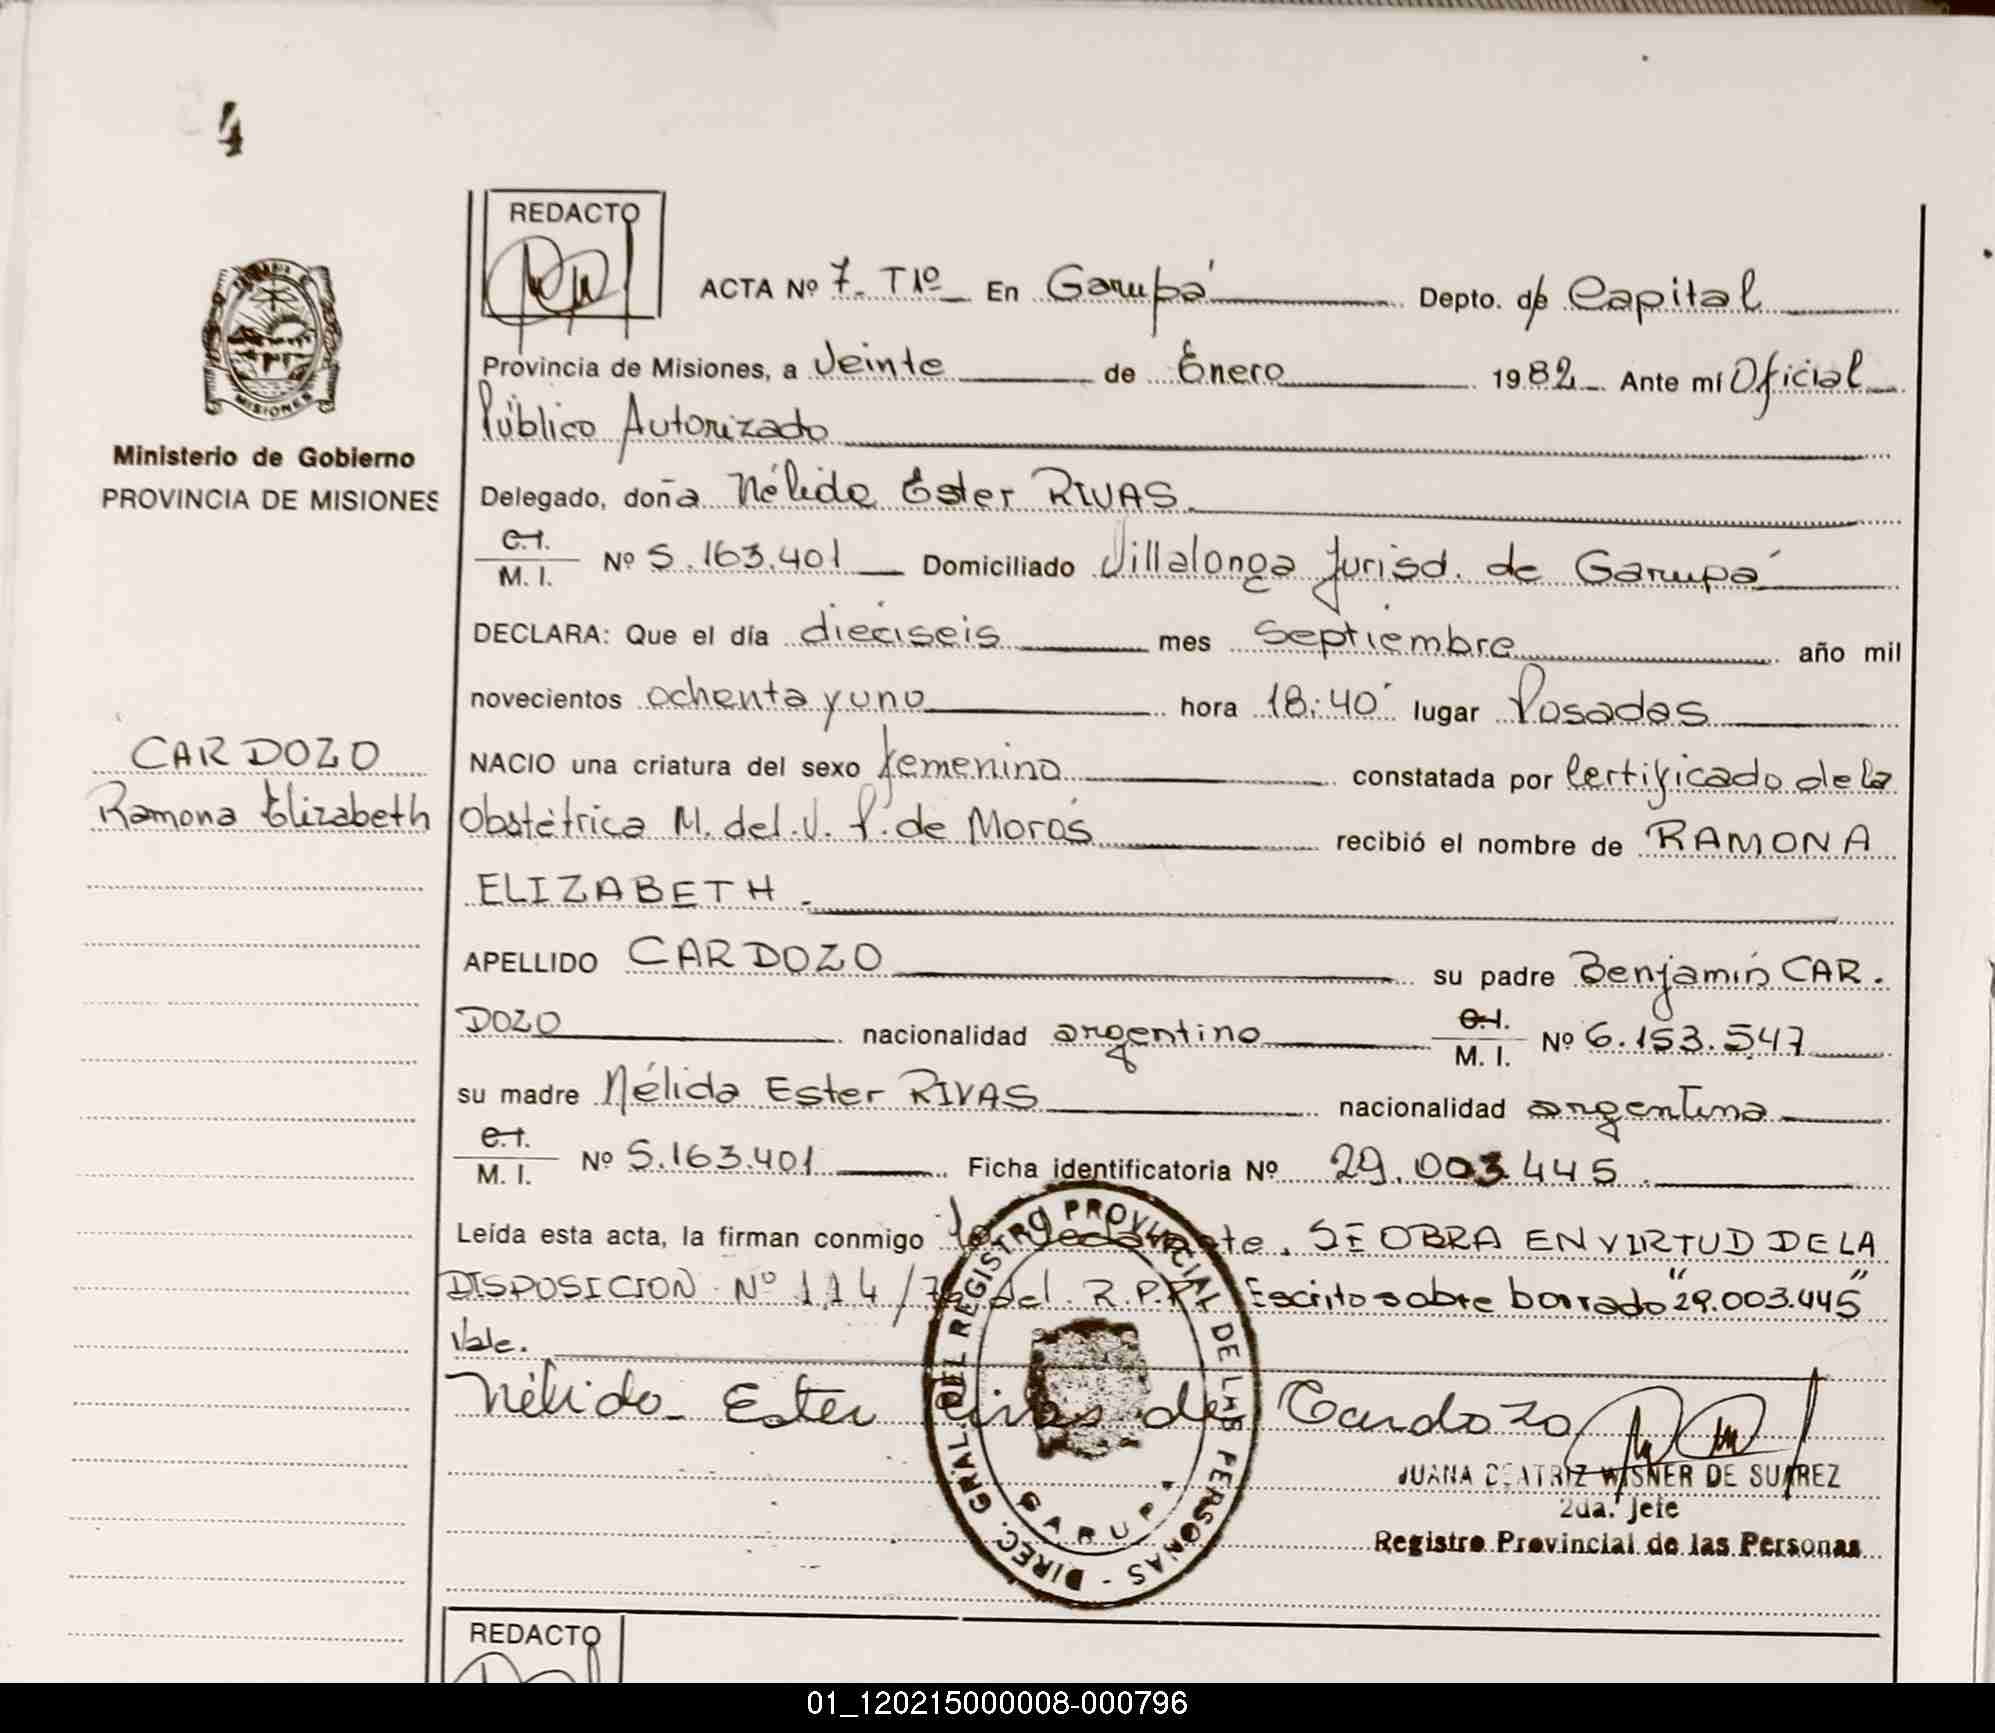 4
REDACTO
ACTA Nº 7. T1º En Garupá Depto. de Capital
Provincia de Misiones, a Veinte de Enero 1982 Ante mí Oficial
Público Autorizado
Ministerio de Gobierno
PROVINCIA DE MISIONES
MISIONES
Delegado, doña Nélida Ester RIVAS
C.I.
M. I. Nº 5.163.401 Domiciliado Villalonga Jurisd. de Garupá
DECLARA: Que el día dieciseis mes Septiembre año mil
novecientos ochenta y uno hora 18:40 lugar Posadas
CARDOZO
Ramona Elizabeth
NACIO una criatura del sexo femenino constatada por Certificado de la
Obstétrica M. del V. P. de Morás recibió el nombre de RAMONA
ELIZABETH.
APELLIDO CARDOZO su padre Benjamín CAR.
DOZO nacionalidad argentino C.I. M. I. Nº 6.153.547
su madre Nélida Ester RIVAS nacionalidad argentina
C.I.
M. I. Nº 5.163.401 Ficha identificatoria Nº 29.003.445.
Leída esta acta, la firman conmigo la declarante. SE OBRA EN VIRTUD DE LA
DISPOSICION Nº 114/ del R.P.P. Escrito sobre borrado "29.003.445"
Vale.
Nélida Ester Rivas de Cardozo
JUANA BEATRIZ WISNER DE SUAREZ
2da. Jefe
Registro Provincial de las Personas
DIREC. GRAL. DEL REGISTRO PROVINCIAL DE LAS PERSONAS -
GARUPA
REDACTO
01_120215000008-000796